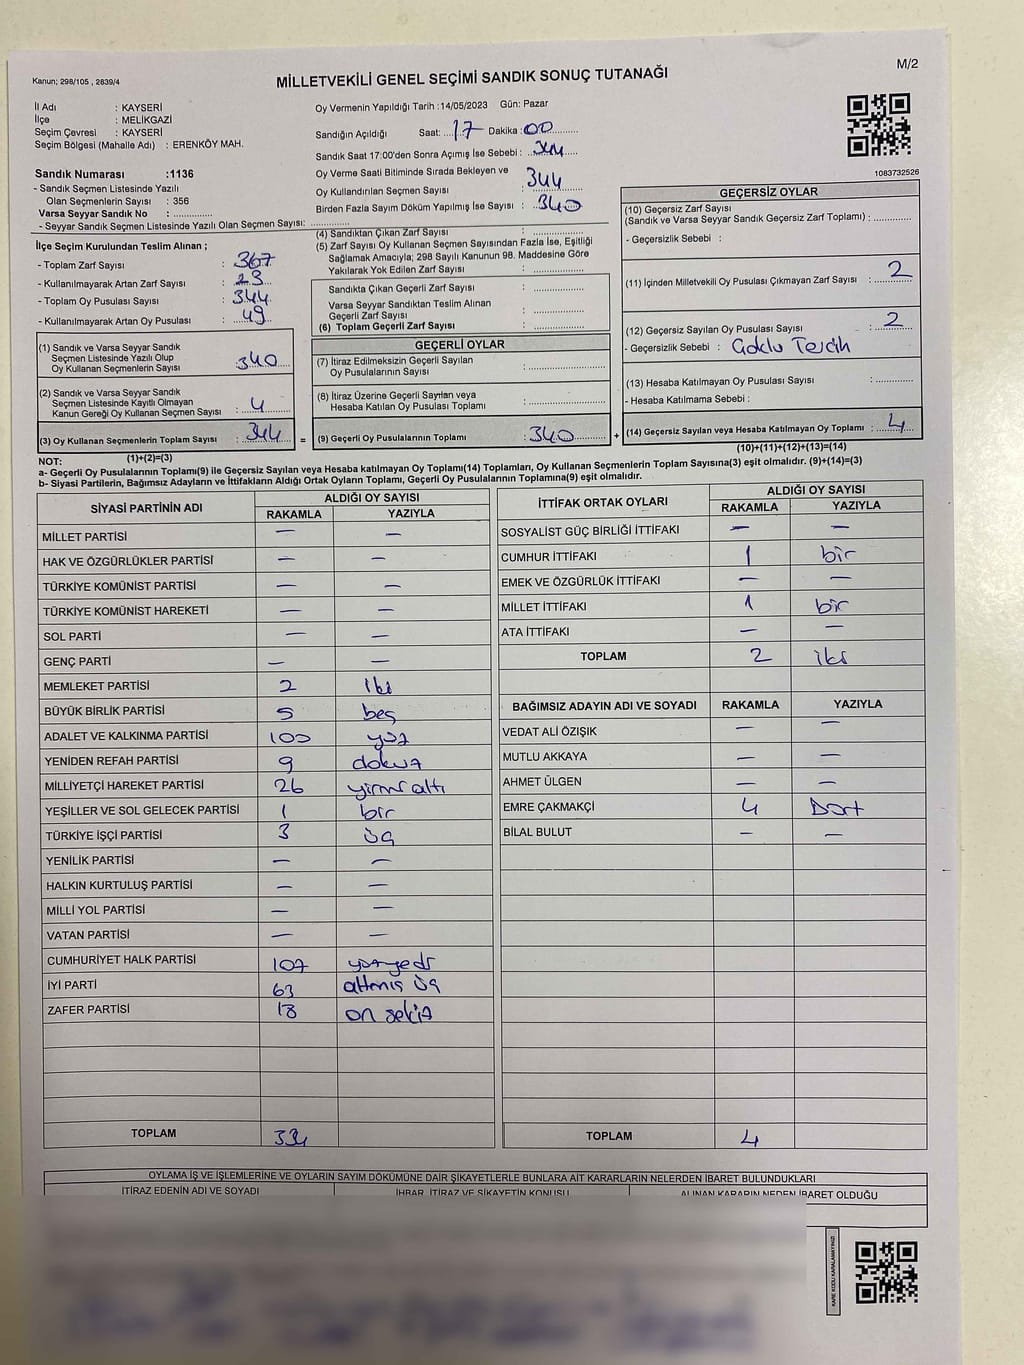 Kanun; 298/105 , 2839/4
MİLLETVEKİLİ GENEL SEÇİMİ SANDIK SONUÇ TUTANAĞI
M/2
İl Adı : KAYSERİ
İlçe : MELİKGAZİ
Seçim Çevresi : KAYSERİ
Seçim Bölgesi (Mahalle Adı) : ERENKÖY MAH.
Sandık Numarası :1136
- Sandık Seçmen Listesinde Yazılı
Olan Seçmenlerin Sayısı : 356
Varsa Seyyar Sandık No : ..............
- Seyyar Sandık Seçmen Listesinde Yazılı Olan Seçmen Sayısı:
Oy Vermenin Yapıldığı Tarih :14/05/2023 Gün: Pazar
Sandığın Açıldığı Saat: 17 Dakika : 00
Sandık Saat 17:00'den Sonra Açımış İse Sebebi : 344
Oy Verme Saati Bitiminde Sırada Bekleyen ve
Oy Kullandırılan Seçmen Sayısı : 344
Birden Fazla Sayım Döküm Yapılmış İse Sayısı : 340
1083732526
İlçe Seçim Kurulundan Teslim Alınan ;
- Toplam Zarf Sayısı : 367
- Kullanılmayarak Artan Zarf Sayısı : 23
- Toplam Oy Pusulası Sayısı : 344
- Kullanılmayarak Artan Oy Pusulası : 49
(1) Sandık ve Varsa Seyyar Sandık
Seçmen Listesinde Yazılı Olup
Oy Kullanan Seçmenlerin Sayısı : 340
(2) Sandık ve Varsa Seyyar Sandık
Seçmen Listesinde Kayıtlı Olmayan
Kanun Gereği Oy Kullanan Seçmen Sayısı : 4
(3) Oy Kullanan Seçmenlerin Toplam Sayısı : 344
(1)+(2)=(3)
(4) Sandıktan Çıkan Zarf Sayısı :
(5) Zarf Sayısı Oy Kullanan Seçmen Sayısından Fazla İse, Eşitliği
Sağlamak Amacıyla; 298 Sayılı Kanunun 98. Maddesine Göre
Yakılarak Yok Edilen Zarf Sayısı :
Sandıkta Çıkan Geçerli Zarf Sayısı :
Varsa Seyyar Sandıktan Teslim Alınan
Geçerli Zarf Sayısı :
(6) Toplam Geçerli Zarf Sayısı :
GEÇERLİ OYLAR
(7) İtiraz Edilmeksizin Geçerli Sayılan
Oy Pusulalarının Sayısı :
(8) İtiraz Üzerine Geçerli Sayılan veya
Hesaba Katılan Oy Pusulası Toplamı :
= (9) Geçerli Oy Pusulalarının Toplamı : 340 +
GEÇERSİZ OYLAR
(10) Geçersiz Zarf Sayısı
(Sandık ve Varsa Seyyar Sandık Geçersiz Zarf Toplamı) :
- Geçersizlik Sebebi :
(11) İçinden Milletvekili Oy Pusulası Çıkmayan Zarf Sayısı : 2
(12) Geçersiz Sayılan Oy Pusulası Sayısı : 2
- Geçersizlik Sebebi : Çoklu Tercih
(13) Hesaba Katılmayan Oy Pusulası Sayısı :
- Hesaba Katılmama Sebebi :
(14) Geçersiz Sayılan veya Hesaba Katılmayan Oy Toplamı : 4
(10)+(11)+(12)+(13)=(14)
NOT:
a- Geçerli Oy Pusulalarının Toplamı(9) ile Geçersiz Sayılan veya Hesaba katılmayan Oy Toplamı(14) Toplamları, Oy Kullanan Seçmenlerin Toplam Sayısına(3) eşit olmalıdır. (9)+(14)=(3)
b- Siyasi Partilerin, Bağımsız Adayların ve İttifakların Aldığı Ortak Oyların Toplamı, Geçerli Oy Pusulalarının Toplamına(9) eşit olmalıdır.
SİYASİ PARTİNİN ADI ALDIĞI OY SAYISI
RAKAMLA YAZIYLA
MİLLET PARTİSİ — —
HAK VE ÖZGÜRLÜKLER PARTİSİ — —
TÜRKİYE KOMÜNİST PARTİSİ — —
TÜRKİYE KOMÜNİST HAREKETİ — —
SOL PARTİ — —
GENÇ PARTİ — —
MEMLEKET PARTİSİ 2 İki
BÜYÜK BİRLİK PARTİSİ 5 beş
ADALET VE KALKINMA PARTİSİ 100 yüz
YENİDEN REFAH PARTİSİ 9 dokuz
MİLLİYETÇİ HAREKET PARTİSİ 26 yirmi altı
YEŞİLLER VE SOL GELECEK PARTİSİ 1 bir
TÜRKİYE İŞÇİ PARTİSİ 3 üç
YENİLİK PARTİSİ — —
HALKIN KURTULUŞ PARTİSİ — —
MİLLİ YOL PARTİSİ — —
VATAN PARTİSİ — —
CUMHURİYET HALK PARTİSİ 107 yüzyedi
İYİ PARTİ 63 altmış üç
ZAFER PARTİSİ 18 on sekiz
TOPLAM 334
İTTİFAK ORTAK OYLARI ALDIĞI OY SAYISI
RAKAMLA YAZIYLA
SOSYALİST GÜÇ BİRLİĞİ İTTİFAKI — —
CUMHUR İTTİFAKI 1 bir
EMEK VE ÖZGÜRLÜK İTTİFAKI — —
MİLLET İTTİFAKI 1 bir
ATA İTTİFAKI — —
TOPLAM 2 iki
BAĞIMSIZ ADAYIN ADI VE SOYADI RAKAMLA YAZIYLA
VEDAT ALİ ÖZIŞIK — —
MUTLU AKKAYA — —
AHMET ÜLGEN — —
EMRE ÇAKMAKÇİ 4 Dört
BİLAL BULUT — —
TOPLAM 4
OYLAMA İŞ VE İŞLEMLERİNE VE OYLARIN SAYIM DÖKÜMÜNE DAİR ŞİKAYETLERLE BUNLARA AİT KARARLARIN NELERDEN İBARET BULUNDUKLARI
İTİRAZ EDENİN ADI VE SOYADI İHBAR, İTİRAZ VE ŞİKAYETİN KONUSU ALINAN KARARIN NEDEN İBARET OLDUĞU
KARE KODU KARALAMAYINIZ!